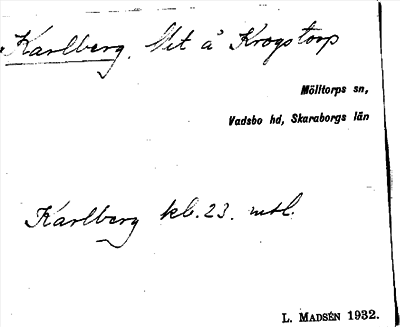 Karlberg. Net å Krogstorp
Mölltorps sn,
Vadsbo hd, Skaraborgs län
Karlberg kb. 23. mtl.
L. MADSÉN 1932.